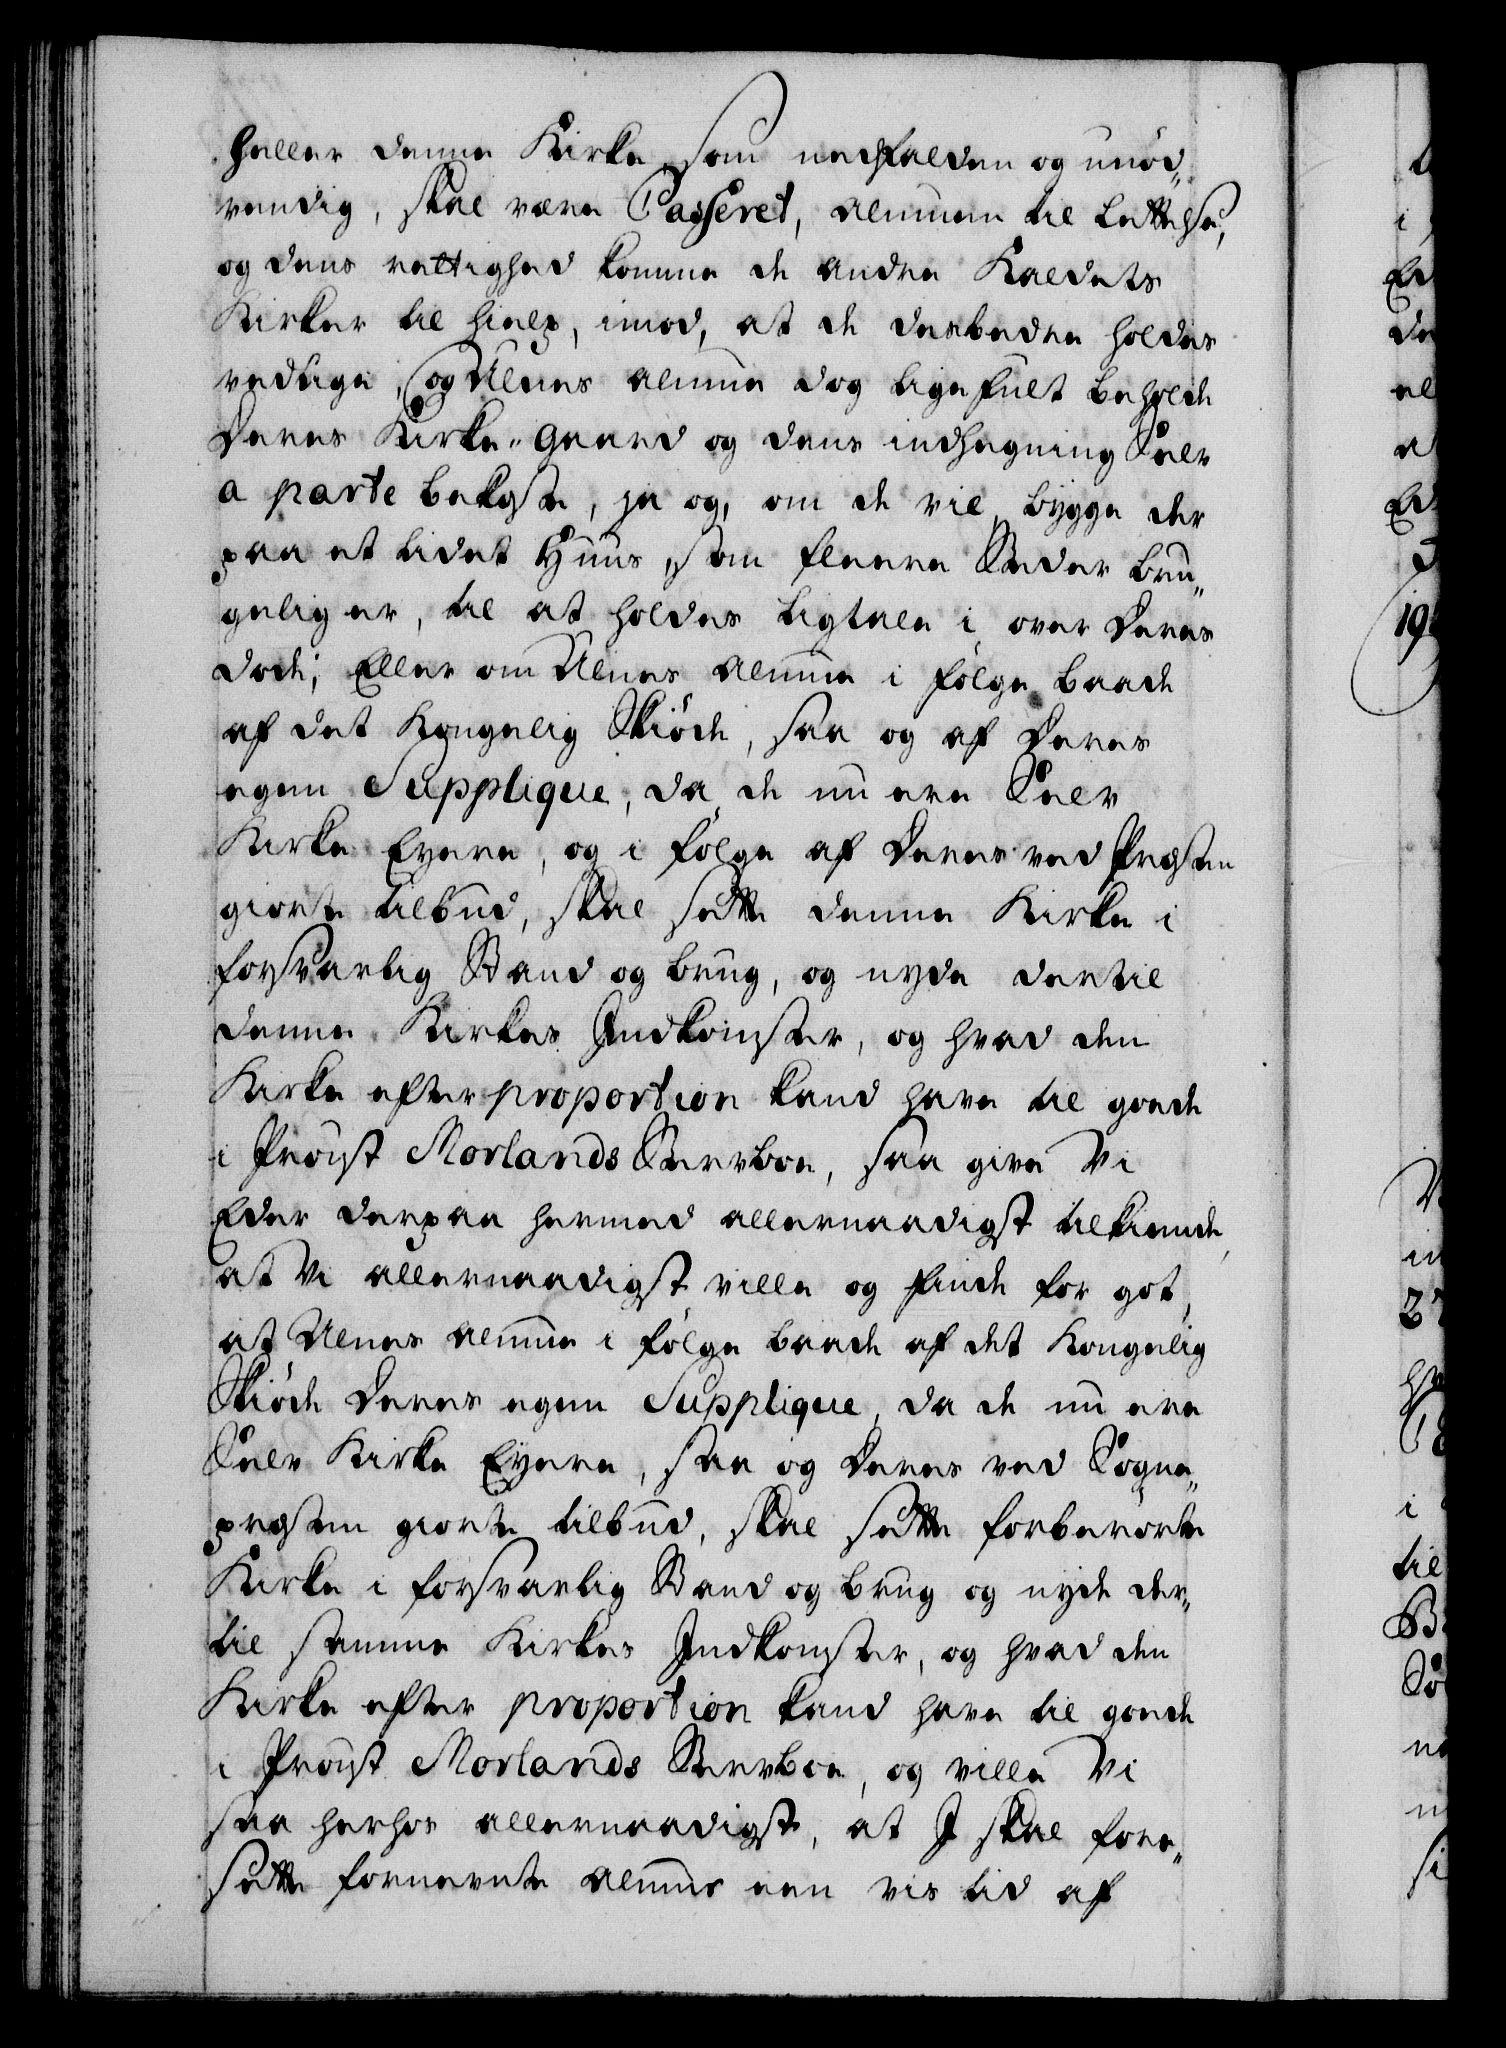 heller denne Kirke, som nedfalden og unød„
vendig, skal være Casseret, almuen til lettelse,
og dens rettighed komme de andre Kaldets
Kirker til hielp, imod, at de desbedre holdes
vedlige, og Ulnes almue dog ligefult beholde
Deres Kirke-Gaard og dens indhegning Selv
a parte bekoste, ja og, om de vil, bygge der
paa et lidet Huus, som fleere Steder bru„
gelig er, til at holdes ligtale i over Deres
døde; Eller om Ulnes Almue i følge baade
af det Kongelig Skiøde, saa og af Deres
egen Supplique, da de nu ere Selv
Kirke Eyere, og i følge af Deres ved Præsten
giorte tilbud, skal sætte denne Kirke i
forsvarlig Stand og brug, og nyde dertil
denne Kirkes Indkomster, og hvad den
Kirke efter proportion kand have til gode
i Provst Morlands Stervboe, saa give Vi
Eder derpaa hermed allernaadigst tilkiende,
at Vi allernaadigst ville og finde for got,
at Ulnes Almue i følge baade af det Kongelig
Skiøde Deres egen Supplique, da de nu ere
Selv Kirke Eyere, saa og Deres ved Sogne„
præsten giorte tilbud, skal sætte forberørte
Kirke i forsvarlig Stand og brug og nyde der„
til samme Kirkes Indkomster, og hvad den
Kirke efter proportion kand have til gode
i Provst Morlands Stervboe, og ville Vi
saa herhos allernaadigst, at I skal fore„
sætte fornevnte Almue een vis tid af